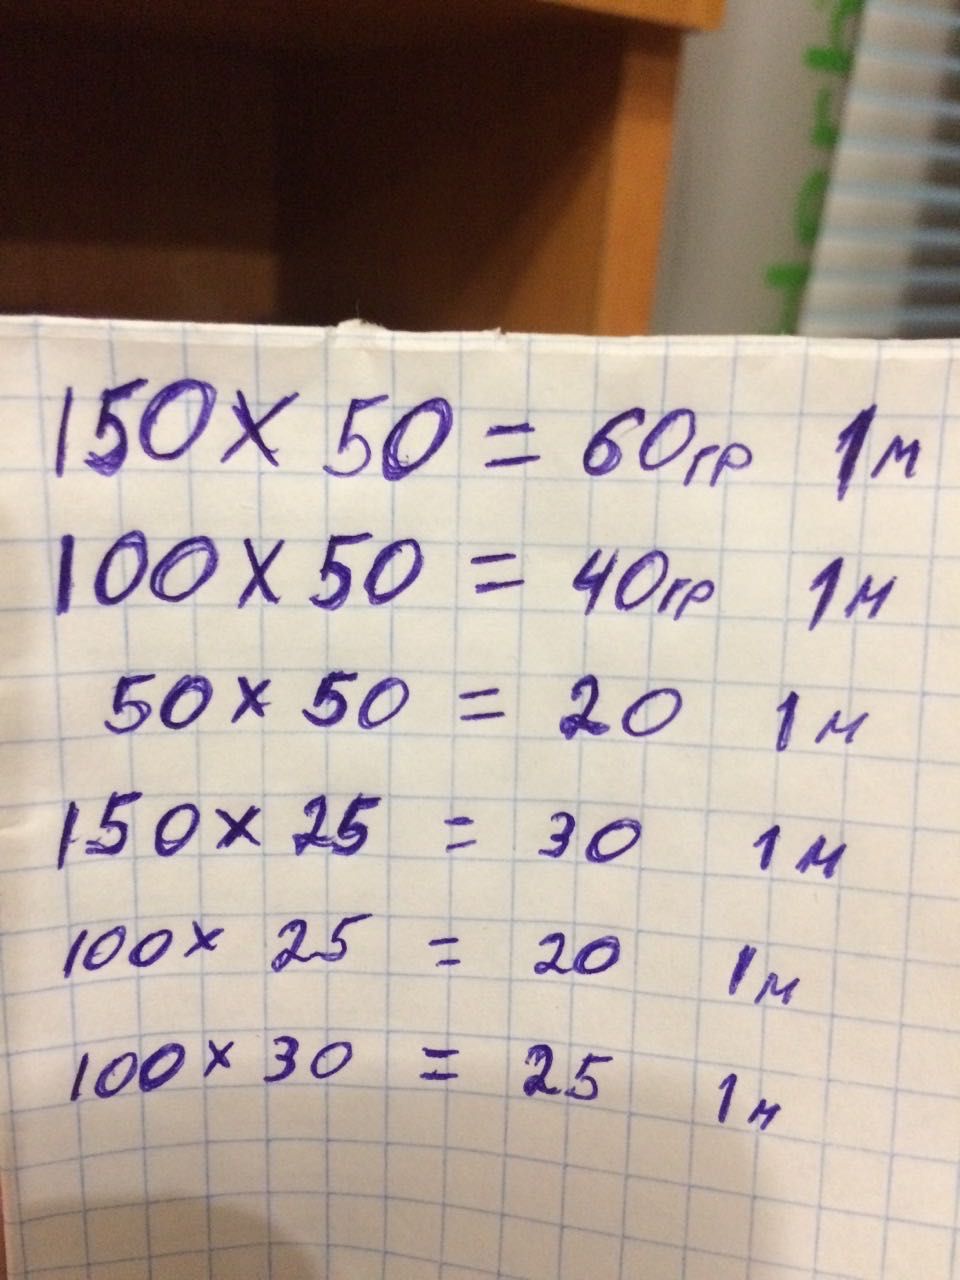 150 х 50 = 60гр 1м
100 х 50 = 40гр 1м
50 х 50 = 20 1м
150 х 25 = 30 1м
100 х 25 = 20 1м
100 х 30 = 25 1м